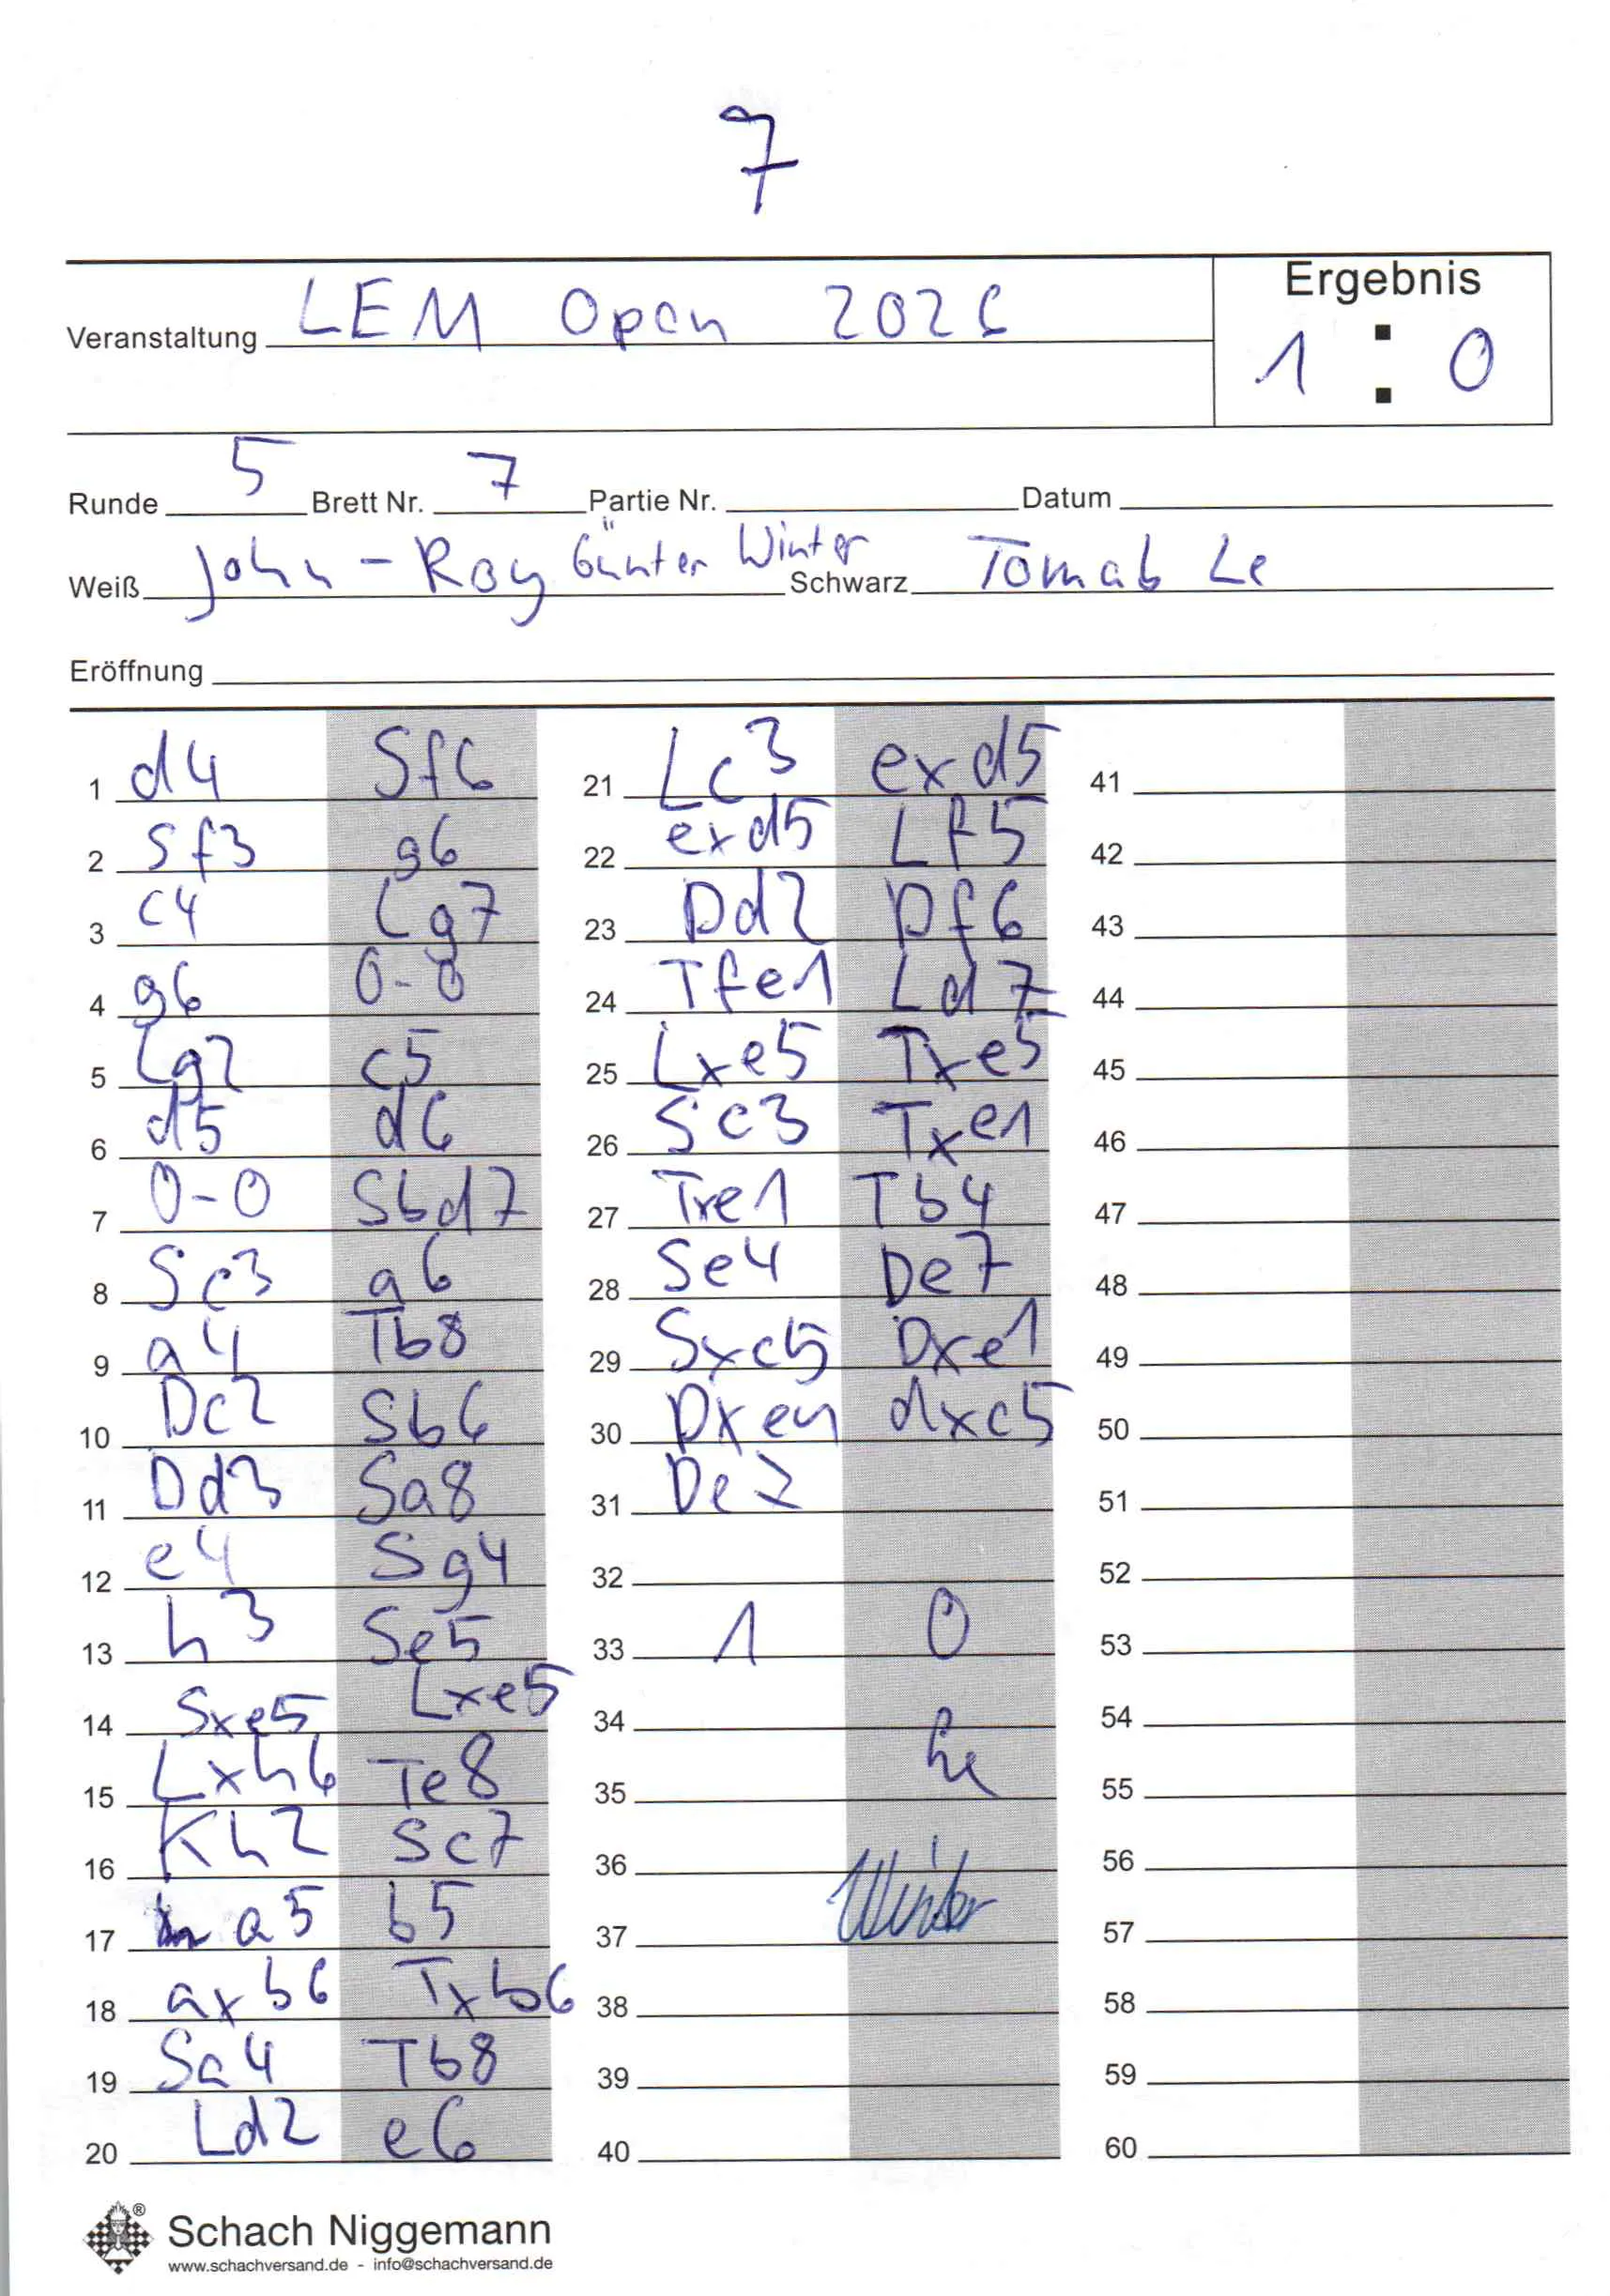 7
Veranstaltung LEM Open 2026
Ergebnis
1 : 0
Runde 5 Brett Nr. 7 Partie Nr. Datum
Weiß John-Roy Günter Winter Schwarz Tomab Le
Eröffnung
1 d4 Sf6
2 Sf3 g6
3 c4 Lg7
4 g6 0-0
5 Lg2 c5
6 d5 d6
7 0-0 Sbd7
8 Sc3 a6
9 a4 Tb8
10 Dc2 Sb6
11 Dd3 Sa8
12 e4 Sg4
13 h3 Se5
14 Sxe5 Lxe5
15 Lxh6 Te8
16 Kh2 Sc7
17 a5 b5
18 axb6 Txb6
19 Sa4 Tb8
20 Ld2 e6
21 Lc3 exd5
22 exd5 Lf5
23 Dd2 Df6
24 Tfe1 Ld7
25 Lxe5 Txe5
26 Sc3 Txe1
27 Txe1 Tb4
28 Se4 De7
29 Sxc5 Dxe1
30 Dxe1 dxc5
31 De7
32
33 1 0
34
35 Le
36
37 Winter
38
39
40
41
42
43
44
45
46
47
48
49
50
51
52
53
54
55
56
57
58
59
60
® Schach Niggemann
www.schachversand.de - info@schachversand.de